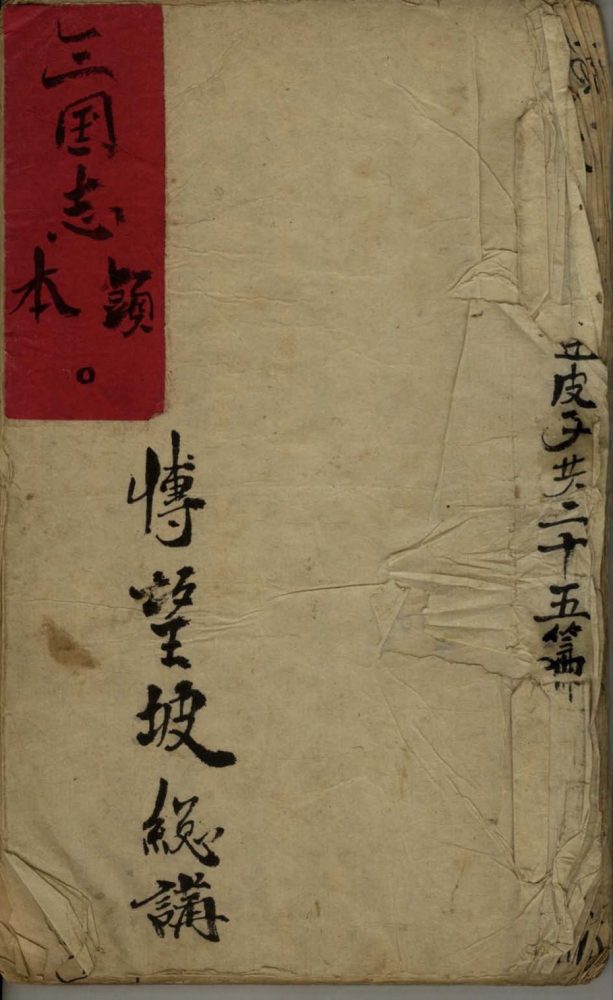 皮子共二十五篇
三国志
頭本。
愽望坡総講